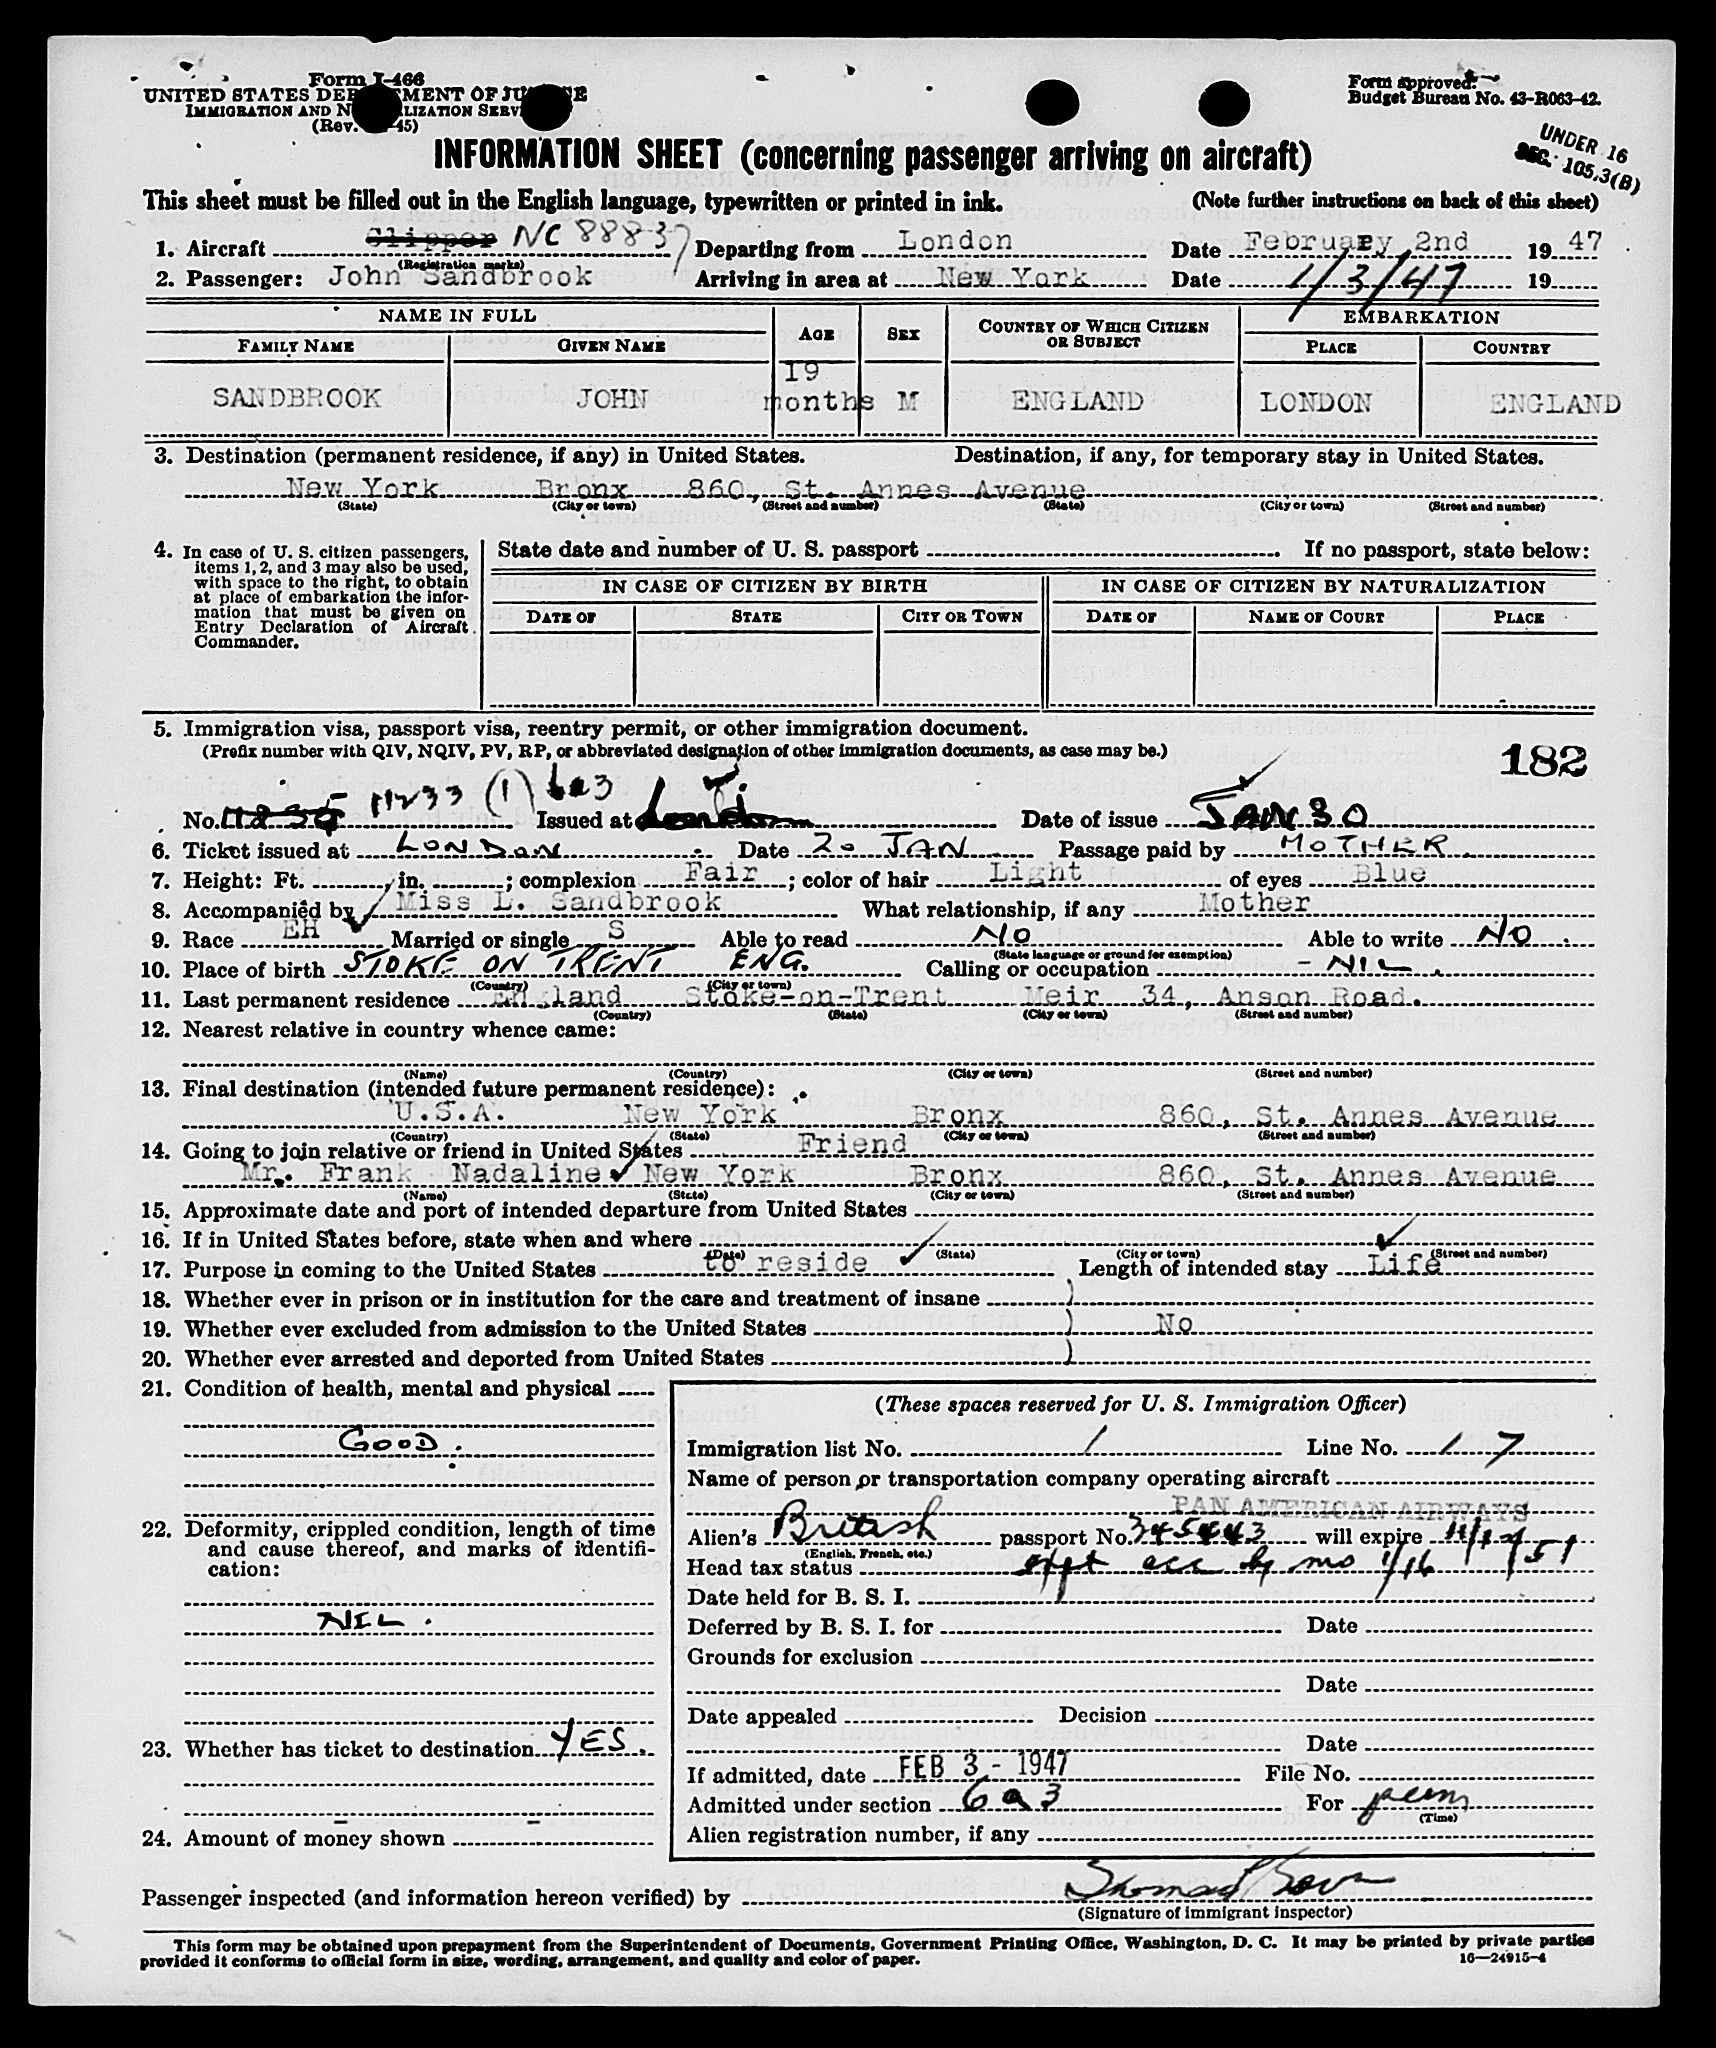 Form I-466
UNITED STATES DEPARTMENT OF JUSTICE
IMMIGRATION AND NATURALIZATION SERVICE
(Rev. 45)
Form approved.
Budget Bureau No. 43-R063-42.
UNDER 16
SEC. 105.3(B)
INFORMATION SHEET (concerning passenger arriving on aircraft)
This sheet must be filled out in the English language, typewritten or printed in ink. (Note further instructions on back of this sheet)
1. Aircraft Clipper NC 88837 Departing from London Date February 2nd 1947
(Registration marks)
2. Passenger: John Sandbrook Arriving in area at New York Date 1/3/47 19
NAME IN FULL AGE SEX COUNTRY OF WHICH CITIZEN OR SUBJECT EMBARKATION
FAMILY NAME GIVEN NAME PLACE COUNTRY
SANDBROOK JOHN 19 months M ENGLAND LONDON ENGLAND
3. Destination (permanent residence, if any) in United States. Destination, if any, for temporary stay in United States.
New York Bronx 860, St. Annes Avenue
(State) (City or town) (Street and number) (State) (City or town) (Street and number)
4. In case of U. S. citizen passengers,
items 1, 2, and 3 may also be used,
with space to the right, to obtain
at place of embarkation the infor-
mation that must be given on
Entry Declaration of Aircraft
Commander.
State date and number of U. S. passport If no passport, state below:
IN CASE OF CITIZEN BY BIRTH IN CASE OF CITIZEN BY NATURALIZATION
DATE OF STATE CITY OR TOWN DATE OF NAME OF COURT PLACE
5. Immigration visa, passport visa, reentry permit, or other immigration document.
(Prefix number with QIV, NQIV, PV, RP, or abbreviated designation of other immigration documents, as case may be.)
182
No. 11233 (1) 6a3 Issued at London Date of issue JAN 30
6. Ticket issued at LONDON Date 20 JAN. Passage paid by MOTHER.
7. Height: Ft. in. ; complexion Fair ; color of hair Light of eyes Blue
8. Accompanied by Miss L. Sandbrook What relationship, if any Mother
9. Race EH Married or single S Able to read NO Able to write NO.
(State language or ground for exemption)
10. Place of birth STOKE ON TRENT ENG. Calling or occupation - NIL.
(Country) (City or town)
11. Last permanent residence England Stoke-on-Trent Meir 34, Anson Road.
(Country) (State) (City or town) (Street and number)
12. Nearest relative in country whence came:
(Name) (Country) (City or town) (Street and number)
13. Final destination (intended future permanent residence):
U.S.A. New York Bronx 860, St. Annes Avenue
(Country) (State) (City or town) (Street and number)
14. Going to join relative or friend in United States Friend
Mr. Frank Nadaline New York Bronx 860, St. Annes Avenue
(Name) (State) (City or town) (Street and number)
15. Approximate date and port of intended departure from United States
16. If in United States before, state when and where
(Date) (State) (City or town) (Street and number)
17. Purpose in coming to the United States to reside Length of intended stay Life
18. Whether ever in prison or in institution for the care and treatment of insane )
19. Whether ever excluded from admission to the United States ) No
20. Whether ever arrested and deported from United States )
21. Condition of health, mental and physical
GOOD.
22. Deformity, crippled condition, length of time
and cause thereof, and marks of identifi-
cation:
NIL.
23. Whether has ticket to destination YES.
24. Amount of money shown - -
(These spaces reserved for U. S. Immigration Officer)
Immigration list No. 1 Line No. 17
Name of person or transportation company operating aircraft
PAN AMERICAN AIRWAYS
Alien's British passport No. 345443 will expire 11/12/51
(English, French, etc.)
Head tax status
Date held for B. S. I.
Deferred by B. S. I. for Date
Grounds for exclusion
Date
Date appealed Decision
Date
If admitted, date FEB 3 - 1947 File No.
Admitted under section 6a3 For perm
(Time)
Alien registration number, if any
Passenger inspected (and information hereon verified) by
(Signature of immigrant inspector)
This form may be obtained upon prepayment from the Superintendent of Documents, Government Printing Office, Washington, D. C. It may be printed by private parties
provided it conforms to official form in size, wording, arrangement, and quality and color of paper. 16—24915-4